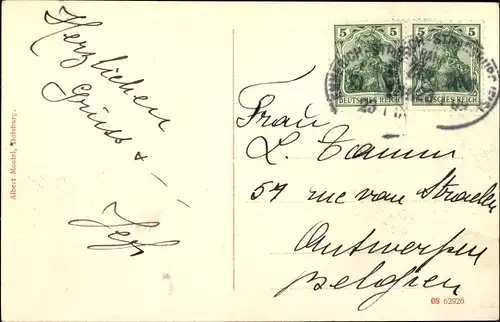 Herzlichen
Gruss
Jef
Albert Mostel, Duisburg.
5 5
DEUTSCHES REICH DEUTSCHES REICH
Frau
L. Tamm
57 rue van Straelen
Antwerpen
Belgien
OS 62926